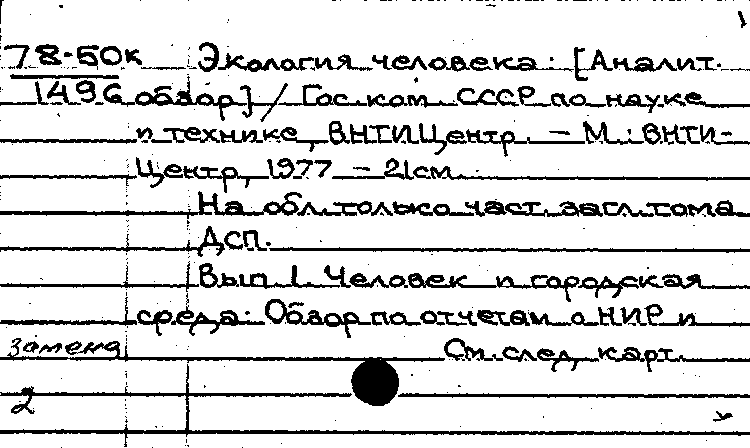 1
78-50к Экология человека: [Аналит.
1496 обзор] / Гос. ком. СССР по науке
и технике, ВНТИЦентр. - М.: ВНТИ-
Центр, 1977 - 21см.
На обл. только част. загл. тома
ДСП.
Вып. 1. Человек и городская
среда: Обзор по отчетам о НИР и
замена См. след. карт.
2